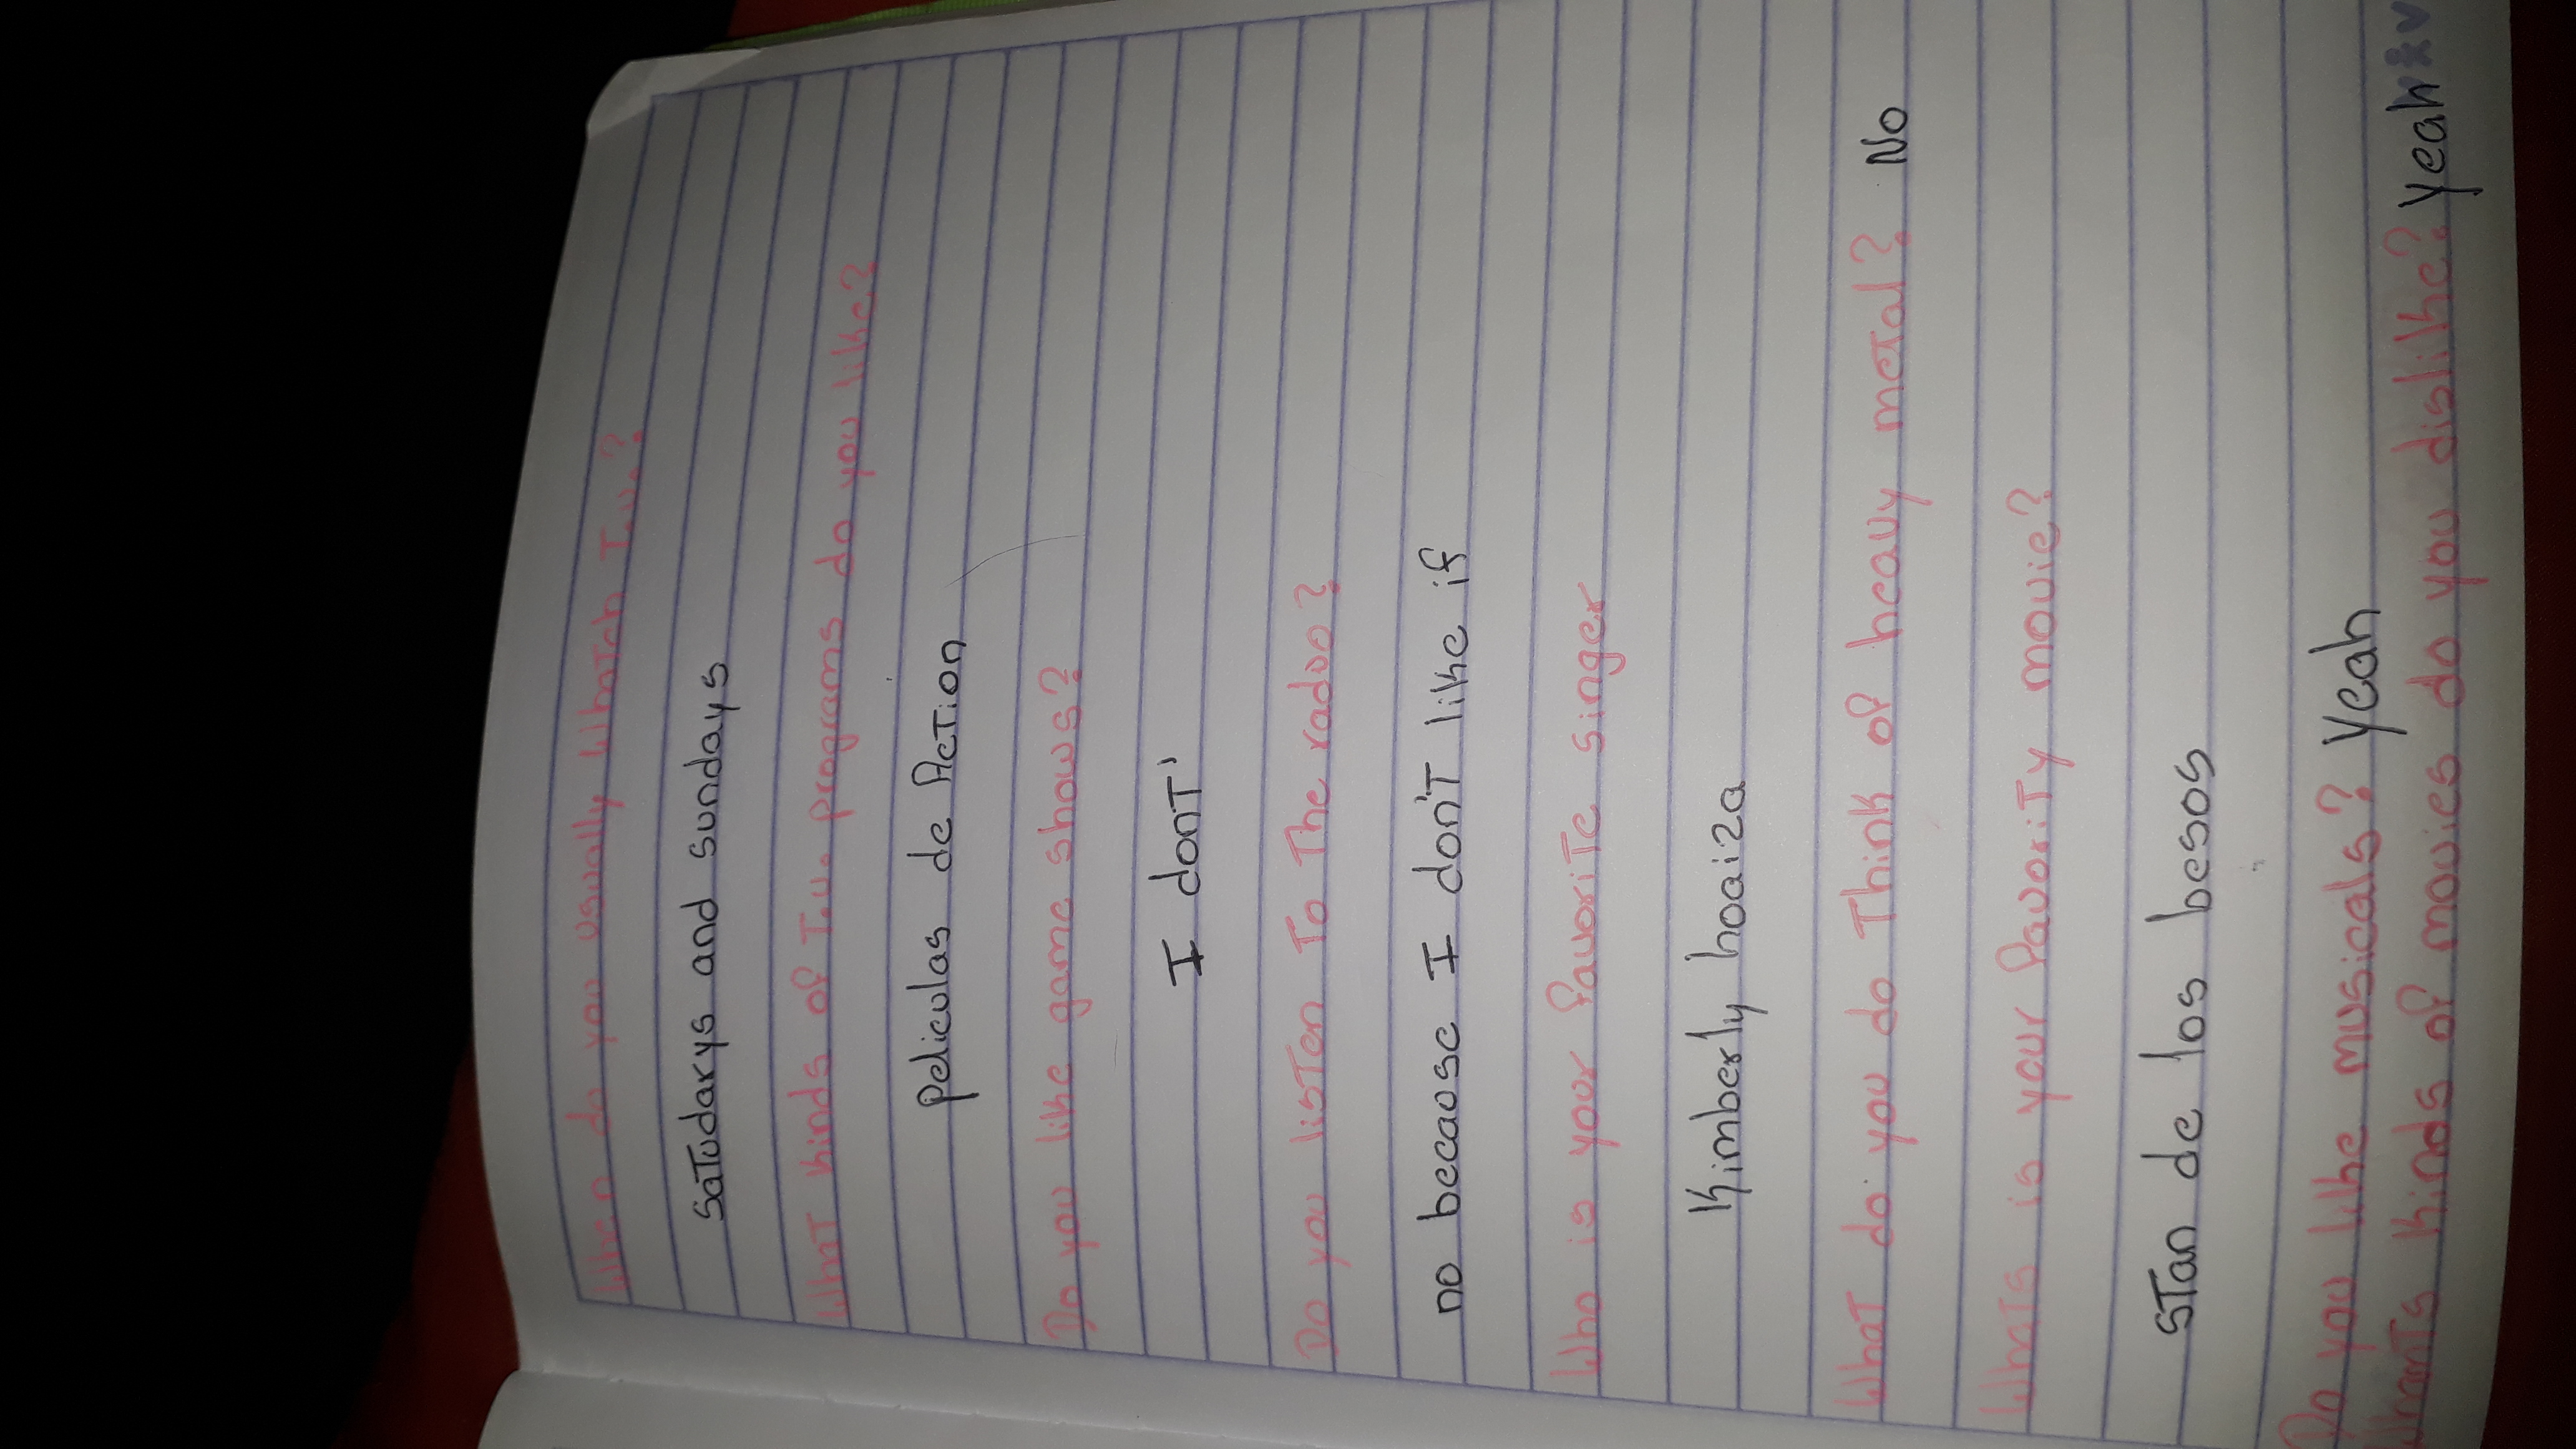 When do you usually Whatch T.v.?
saTudarys and sundays
WhaT kinds of T.v. programs do you like?
peliculas de AcTion
Do you like game shows?
I donT'
Do you lisTen To The radoo?
no becaose I don'T like if
Who is your favoriTe singer
Kimberly hoaiza
WhaT do you do Think of heavy meTal? No
WhaTs is your favoriTy movie?
sTan de los besos
Do you like musicals? Yeah
WhaTs kinds of movies do you dislike? yeah